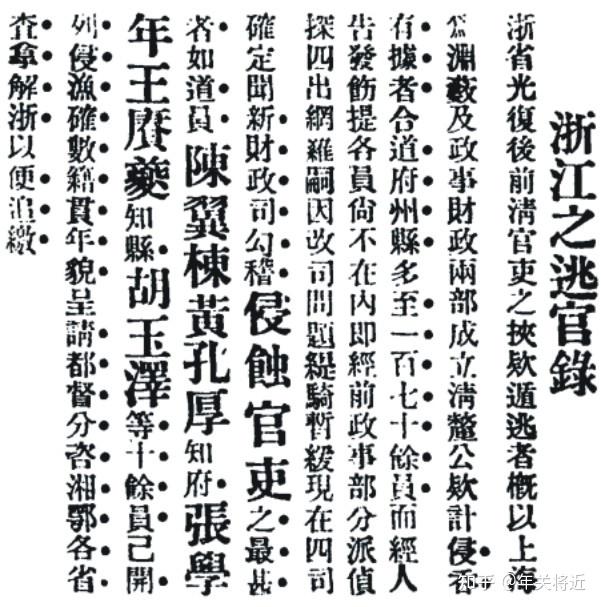 浙江之逃官錄
浙省光復後前淸官吏之挾欵遁逃者槪以上海
爲淵藪及政事財政兩部成立淸釐公欵計侵吞
有據者合道府州縣多至一百七十餘員而經人
吿發飭提各員尙不在內即經前政事部分派偵
探四出網羅嗣因改司問題緹騎暫緩現在四司
確定聞新財政司勾稽侵蝕官吏之最甚
者如道員陳翼棟黃孔厚知府張學
年王賡夔知縣胡玉澤等十餘員已開
列侵漁確數籍貫年貌呈請都督分咨湘鄂各省
查拿解浙以便追繳
知乎 @年关将近